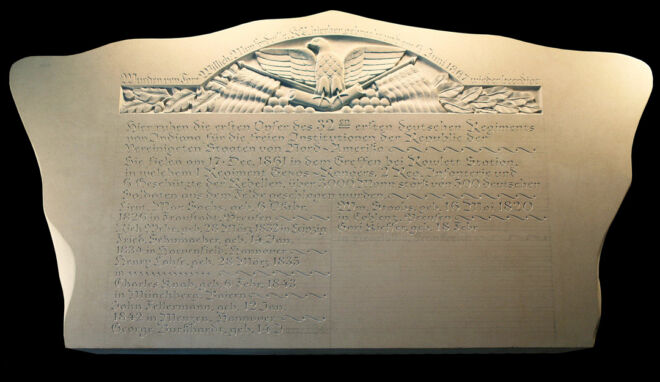 Wurden von Fort Willich Ky. hierher gebracht und am 6. Juni 1867 wieder beerdigt
Hier ruhen die ersten Opfer des 32ten ersten deutschen Regiments
von Indiana für die freien Institutionen der Republik der
Vereinigten Staaten von Nord-Amerika
Sie fielen am 17. Dec. 1861 in dem Treffen bei Rowlett Station,
in welchem 1 Regiment Texas-Rangers, 2 Reg. Infanterie und
6 Geschütze der Rebellen, über 3000 Mann stark von 500 deutschen
Soldaten aus dem Felde geschlagen wurden
Lieut. Max Sachs, geb. 6. Oktober
1826 in Fraustadt, Preußen
Rich. geb. 28. März 1832 in Leipzig
Fried. Schumacher, geb. 14. Jan.
1834 in Hannover
Henry Lohse, geb. 28. März 1835
in
Charles Knab, geb. 6. Febr. 1843
in Münchberg, Baiern
John Fellermann, geb. 12. Jan.
1842 in Menzen, Hannover
George Burkhardt, geb. 14. J
Wm. Staabs, geb. 16. Mai 1820
in Coblenz, Preußen
Garl Kieffer, geb. 18. Febr.